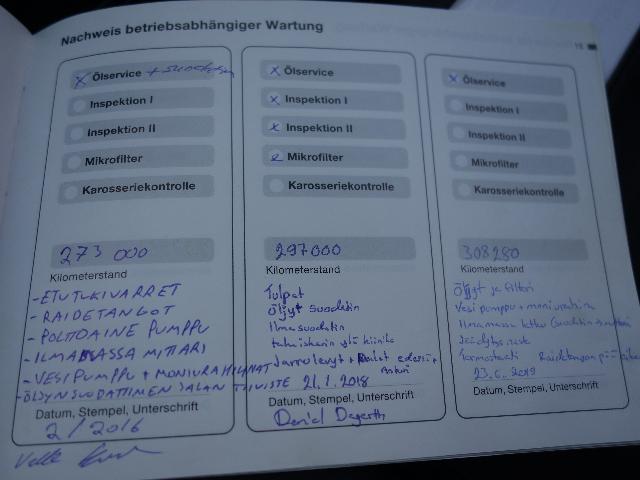 Nachweis betriebsabhängiger Wartung
15
x Ölservice + suodatin
Inspektion I
Inspektion II
Mikrofilter
Karosseriekontrolle
273 000
Kilometerstand
- ETUTUKIVARRET
- RAIDETANGOT
- POLTTOAINE PUMPPU
- ILMAMASSA MITTARI
- VESIPUMPPU + MONIURAHIHNAT
- ÖLJYNSUODATTIMEN JALAN TIIVISTE
Datum, Stempel, Unterschrift
2/2016
x Ölservice
x Inspektion I
x Inspektion II
x Mikrofilter
Karosseriekontrolle
297000
Kilometerstand
Tulpat
Öljyt suodatin
Ilmasuodatin
Jarrulevyt + Palat
21.1.2018
Datum, Stempel, Unterschrift
Daniel Degerth
x Ölservice
Inspektion I
Inspektion II
Mikrofilter
Karosseriekontrolle
308280
Kilometerstand
Öljyt ja filtteri
Vesi pumppu + moniurahihna
Jäähdytys neste
Termostaatti
23.6.2019
Datum, Stempel, Unterschrift